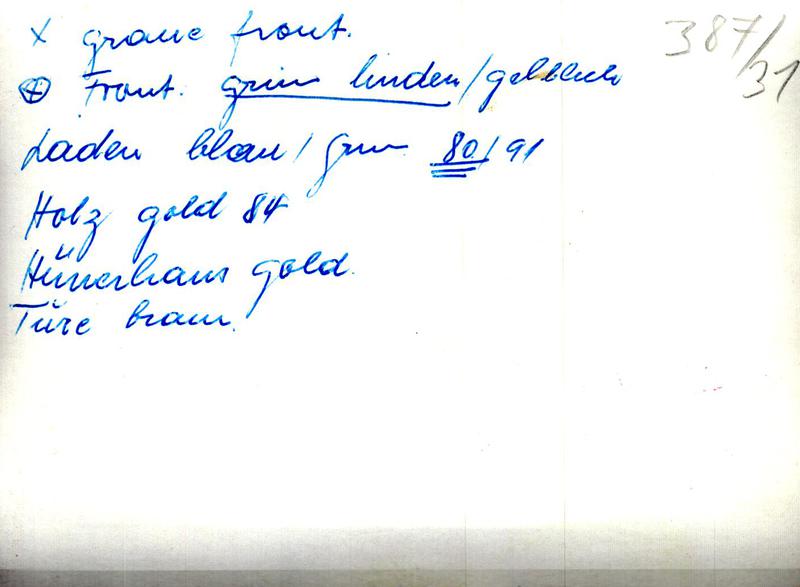 x graue front.
⊕ Front. grün linden/gelblich
387/31
Laden blau/grün 80/91
Holz gold 84
Hünerhaus gold.
Türe braun.